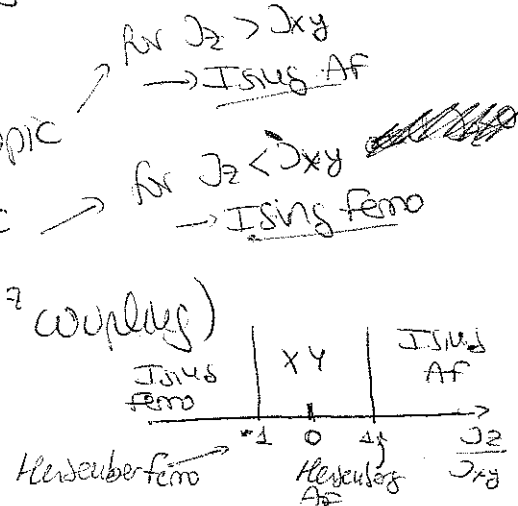 for Jz > Jxy
→ Ising AF
opic
for Jz < Jxy
→ Ising ferro
z coupling)
Ising ferro
XY
Ising AF
-1 0 1
Jz/Jxy
Heisenber ferro
Heisenberg AF